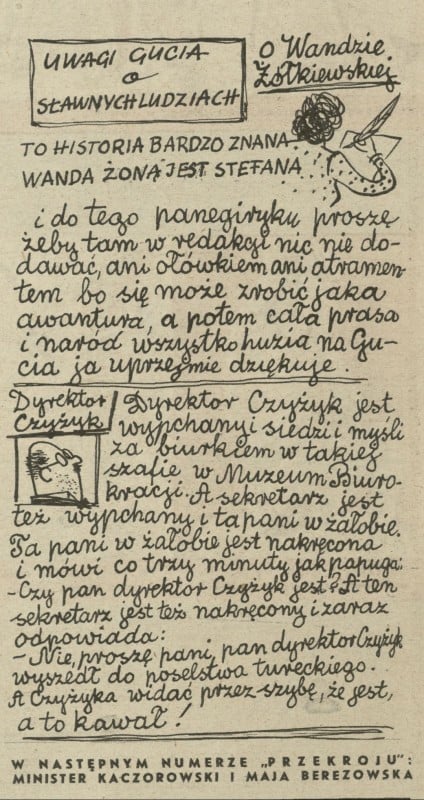 UWAGI GUCIA
o
SŁAWNYCH LUDZIACH
o Wandzie
Żółkiewskiej
TO HISTORIA BARDZO ZNANA
WANDA ŻONĄ JEST STEFANA
i do tego panegiryku proszę
żeby tam w redakcji nic nie do-
dawać, ani ołówkiem ani atramen-
tem bo się może zrobić jaka
awantura, a potem cała prasa
i naród wszystko huzia na Gu-
cia ja uprzejmie dziękuję.
Dyrektor
Czyżyk
Dyrektor Czyżyk jest
wypchany i siedzi i myśli
za biurkiem w takiej
szafie w Muzeum Biuro-
kracji. A sekretarz jest
też wypchany i ta pani w żałobie.
Ta pani w żałobie jest nakręcona
i mówi co trzy minuty jak papuga:
- Czy pan dyrektor Czyżyk jest? A ten
sekretarz jest też nakręcony i zaraz
odpowiada:
- Nie, proszę pani, pan dyrektor Czyżyk
wyszedł do poselstwa tureckiego.
A Czyżyka widać przez szybę, że jest,
a to kawał!
W NASTĘPNYM NUMERZE „PRZEKROJU":
MINISTER KACZOROWSKI I MAJA BEREZOWSKA